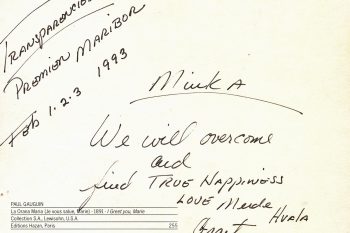 TRANSPARENCIES
PREMIER MARIBOR
Feb 1.2.3 1993
Minka
We will overcome
and
find TRUE HAPPINESS
LOVE
Hvala
PAUL GAUGUIN
La Orana Maria (Je vous salue, Marie) - 1891 - I Greet you, Marie
Collection S.A., Lewisohn, U.S.A.
Editions Hazan, Paris.
255